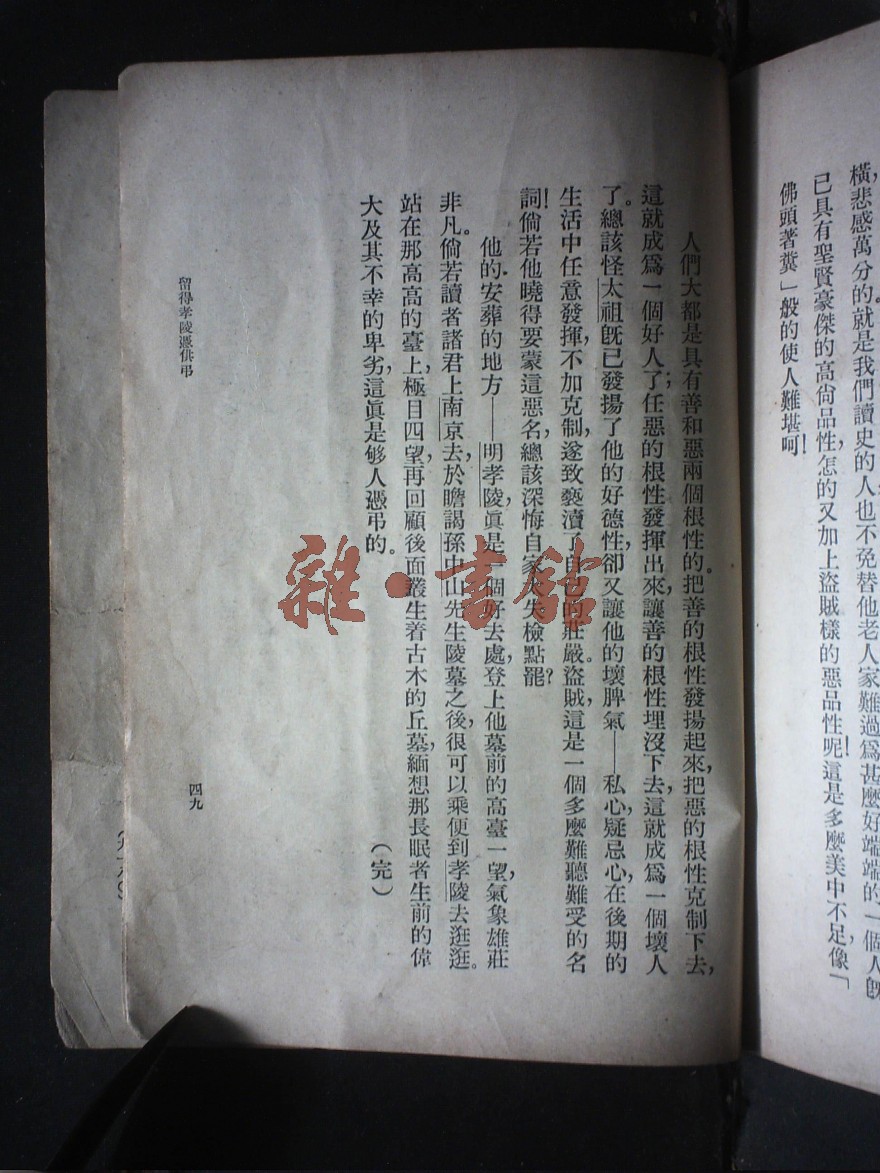 橫，悲感萬分的，就是我們讀史的人，也不免替他老人家難過，爲甚麼好端端的一個人，旣
已具有聖賢豪傑的高尙品性，怎的又加上盜賊樣的惡品性呢！這是多麼美中不足，像「
佛頭著糞」般的使人難堪呵！
人們大都是具有善和惡兩個根性的。把善的根性發揚起來，把惡的根性克制下去，
這就成爲一個好人了；任惡的根性發揮出來，讓善的根性埋沒下去，這就成爲一個壞人
了。總該怪太祖旣已發揚了他的好德性，卻又讓他的壞脾氣——私心疑忌心在後期的
生活中任意發揮，不加克制，遂致褻瀆了自己的莊嚴。盜賊，這是一個多麼難聽難受的名
詞！倘若他曉得要蒙這惡名，總該深悔自家太失檢點罷？
他的安葬的地方——明孝陵，眞是一個好去處，登上他墓前的高臺一望，氣象雄莊
非凡。倘若讀者諸君上南京去，於瞻謁孫中山先生陵墓之後，很可以乘便到孝陵去逛逛。
站在那高高的臺上，極目四望，再回顧後面叢生着古木的丘墓，緬想那長眠者生前的偉
大及其不幸的卑劣，這眞是够人憑弔的。
（完）
留得孝陵憑供弔
四九
雜·書館